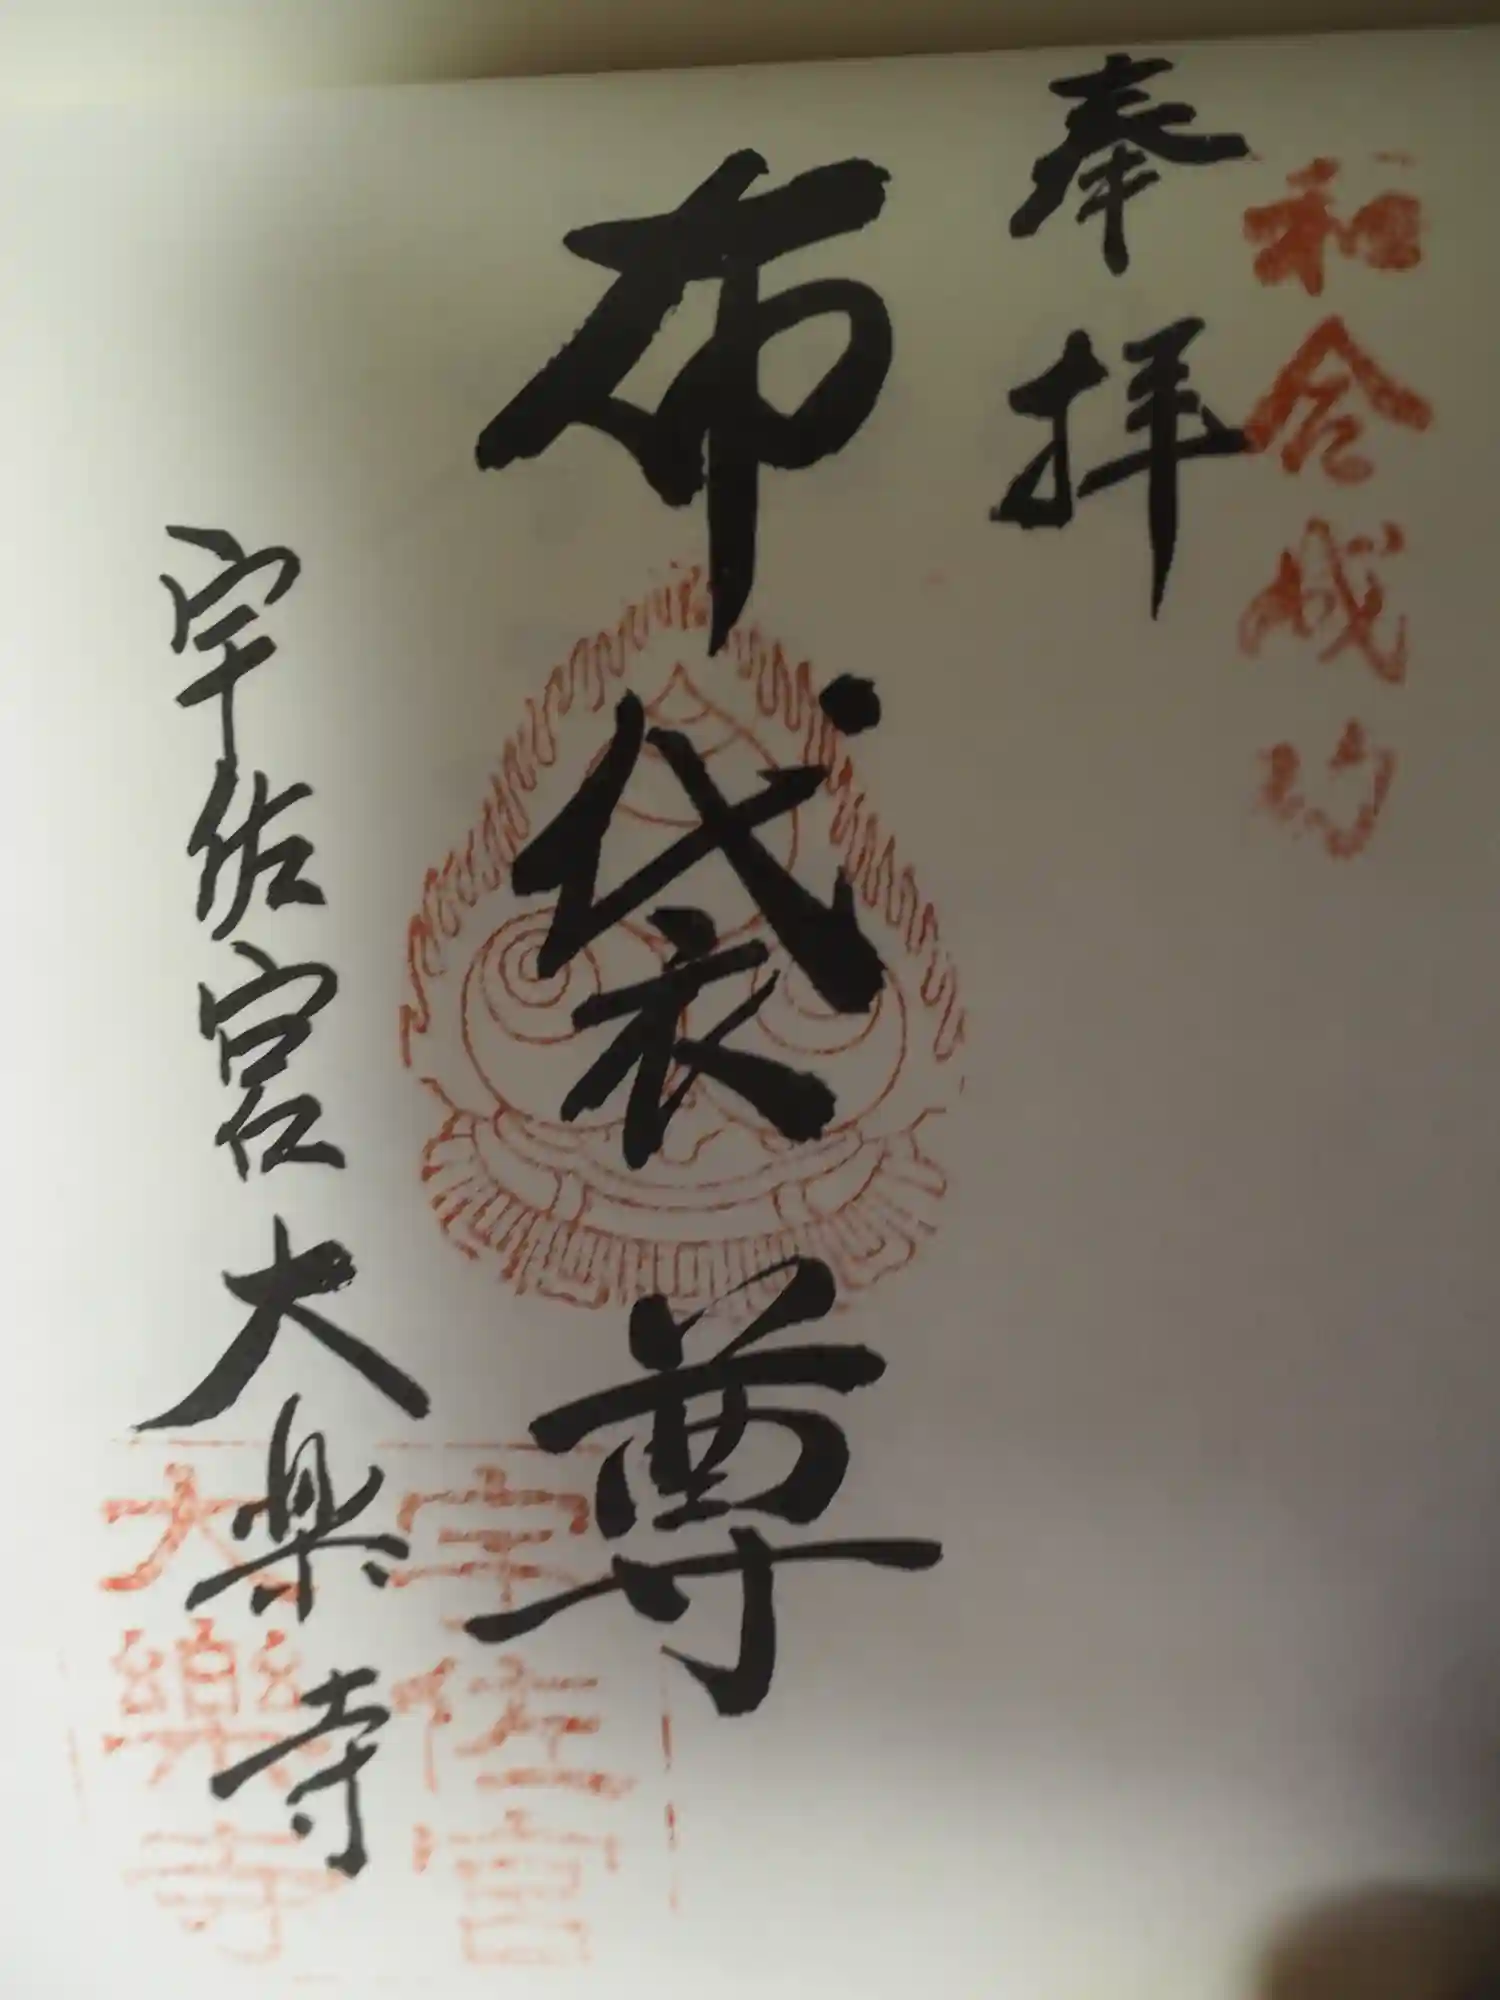 和合成
奉拝
布袋尊
宇佐宮大楽寺
宇佐宮
大樂寺